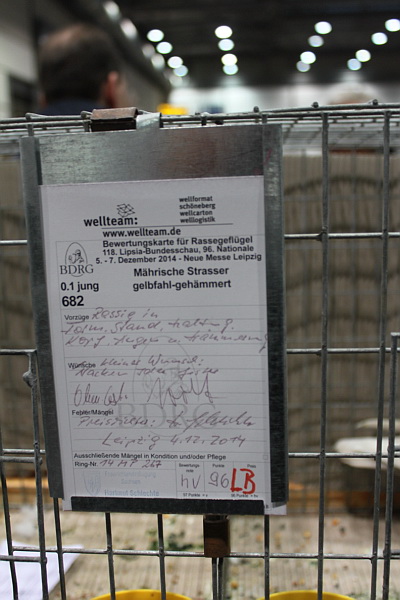 wellteam:
wellformat
schöneberg
wellcarton
wellogistik
www.wellteam.de
Bewertungskarte für Rassegeflügel
118. Lipsia-Bundesschau, 96. Nationale
5. - 7. Dezember 2014 - Neue Messe Leipzig
BDRG
Mährische Strasser
gelbfahl-gehämmert
0.1 jung
682
Vorzüge Rassig in
Form, Stand, Haltung,
Kopf, Augen u. Hämmerung
Wünsche kleine Wünsche:
Nacken
Fehler/Mängel
Preisrichter:
Leipzig 4.12.2014
Ausschließende Mängel in Kondition und/oder Pflege
Ring-Nr. 14 MP 247
Bewertungsnote
Punkte
Preis
hV
96
LB
97 Punkte = v